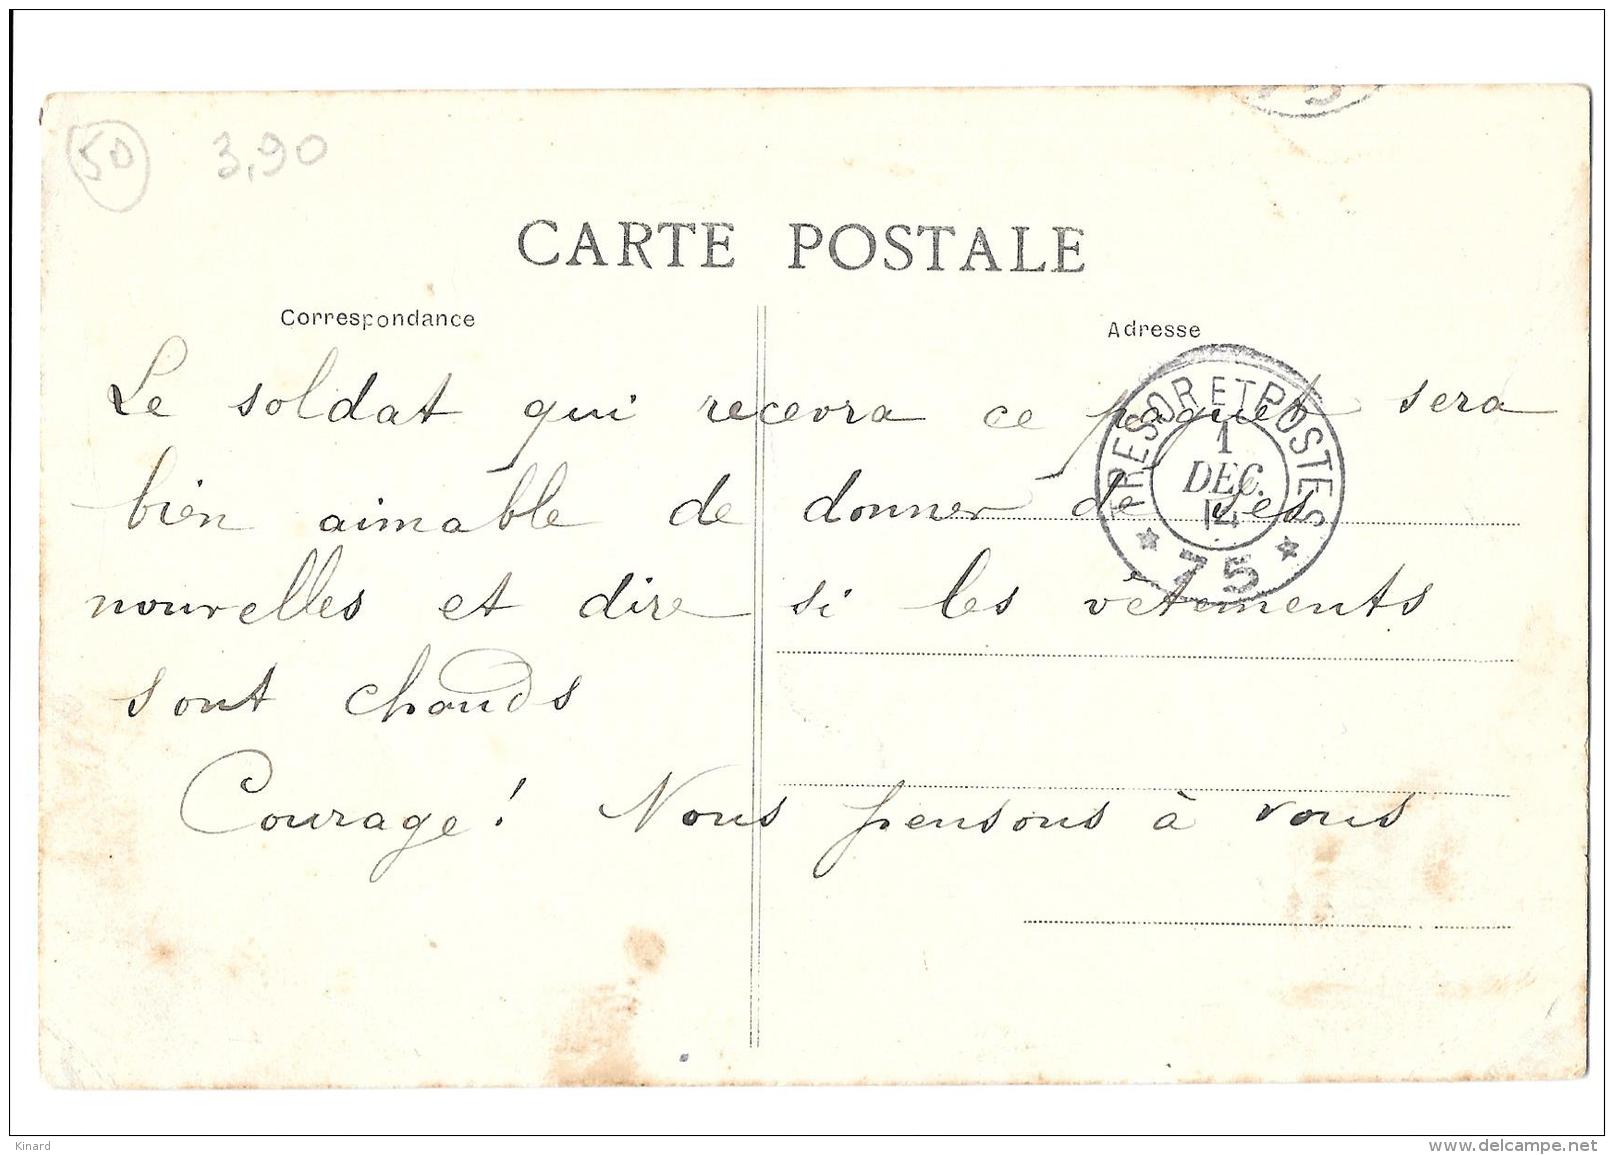 50 3,90
75
CARTE POSTALE
Correspondance
Adresse
TRESOR ET POSTES
1
DEC.
14
* 75 *
Le soldat qui recevra ce paquet sera
bien aimable de donner de ses
nouvelles et dire si les vêtements
sont chauds
Courage ! Nous pensons à vous
Kinard
www.delcampe.net